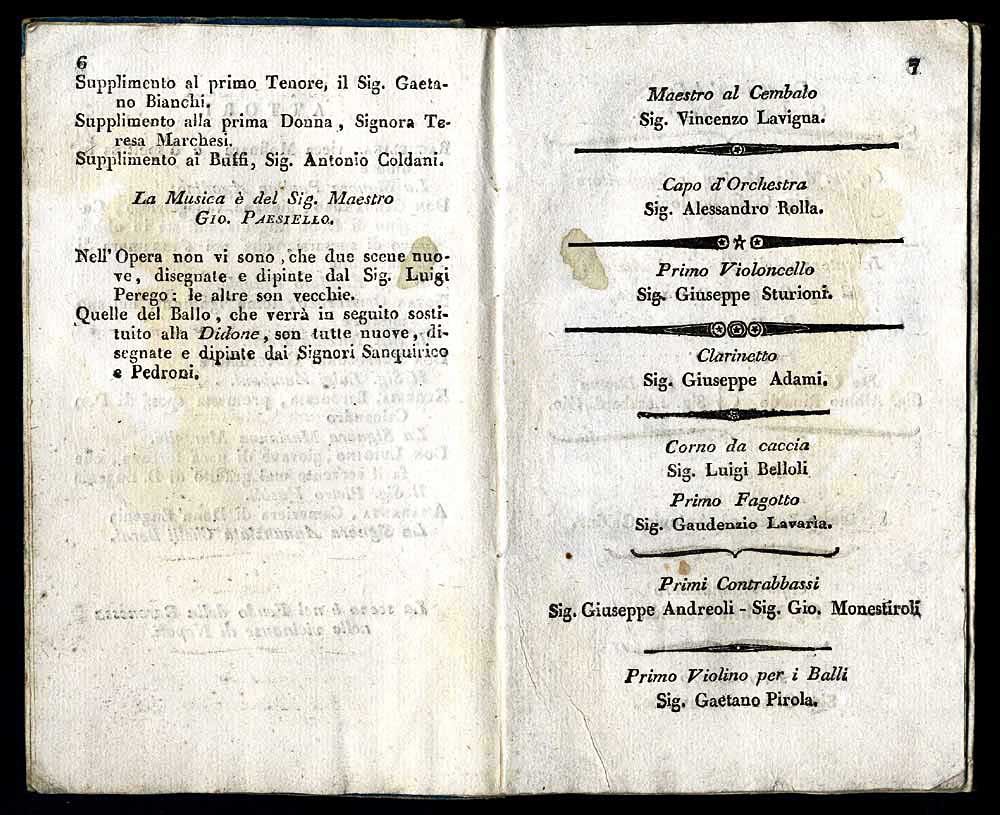 6
Supplimento al primo Tenore, il Sig. Gaeta-
no Bianchi.
Supplimento alla prima Donna, Signora Te-
resa Marchesi.
Supplimento ai Buffi, Sig. Antonio Coldani.
La Musica è del Sig. Maestro
GIO. PAESIELLO.
Nell' Opera non vi sono, che due scene nuo-
ve, disegnate e dipinte dal Sig. Luigi
Perego: le altre son vecchie.
Quelle del Ballo, che verrà in seguito sosti-
tuito alla Didone, son tutte nuove, di-
segnate e dipinte dai Signori Sanquirico
e Pedroni.
7
Maestro al Cembalo
Sig. Vincenzo Lavigna.
Capo d'Orchestra
Sig. Alessandro Rolla.
Primo Violoncello
Sig. Giuseppe Sturioni.
Clarinetto
Sig. Giuseppe Adami.
Corno da caccia
Sig. Luigi Belloli
Primo Fagotto
Sig. Gaudenzio Lavaria.
Primi Contrabbassi
Sig. Giuseppe Andreoli - Sig. Gio. Monestiroli
Primo Violino per i Balli
Sig. Gaetano Pirola.